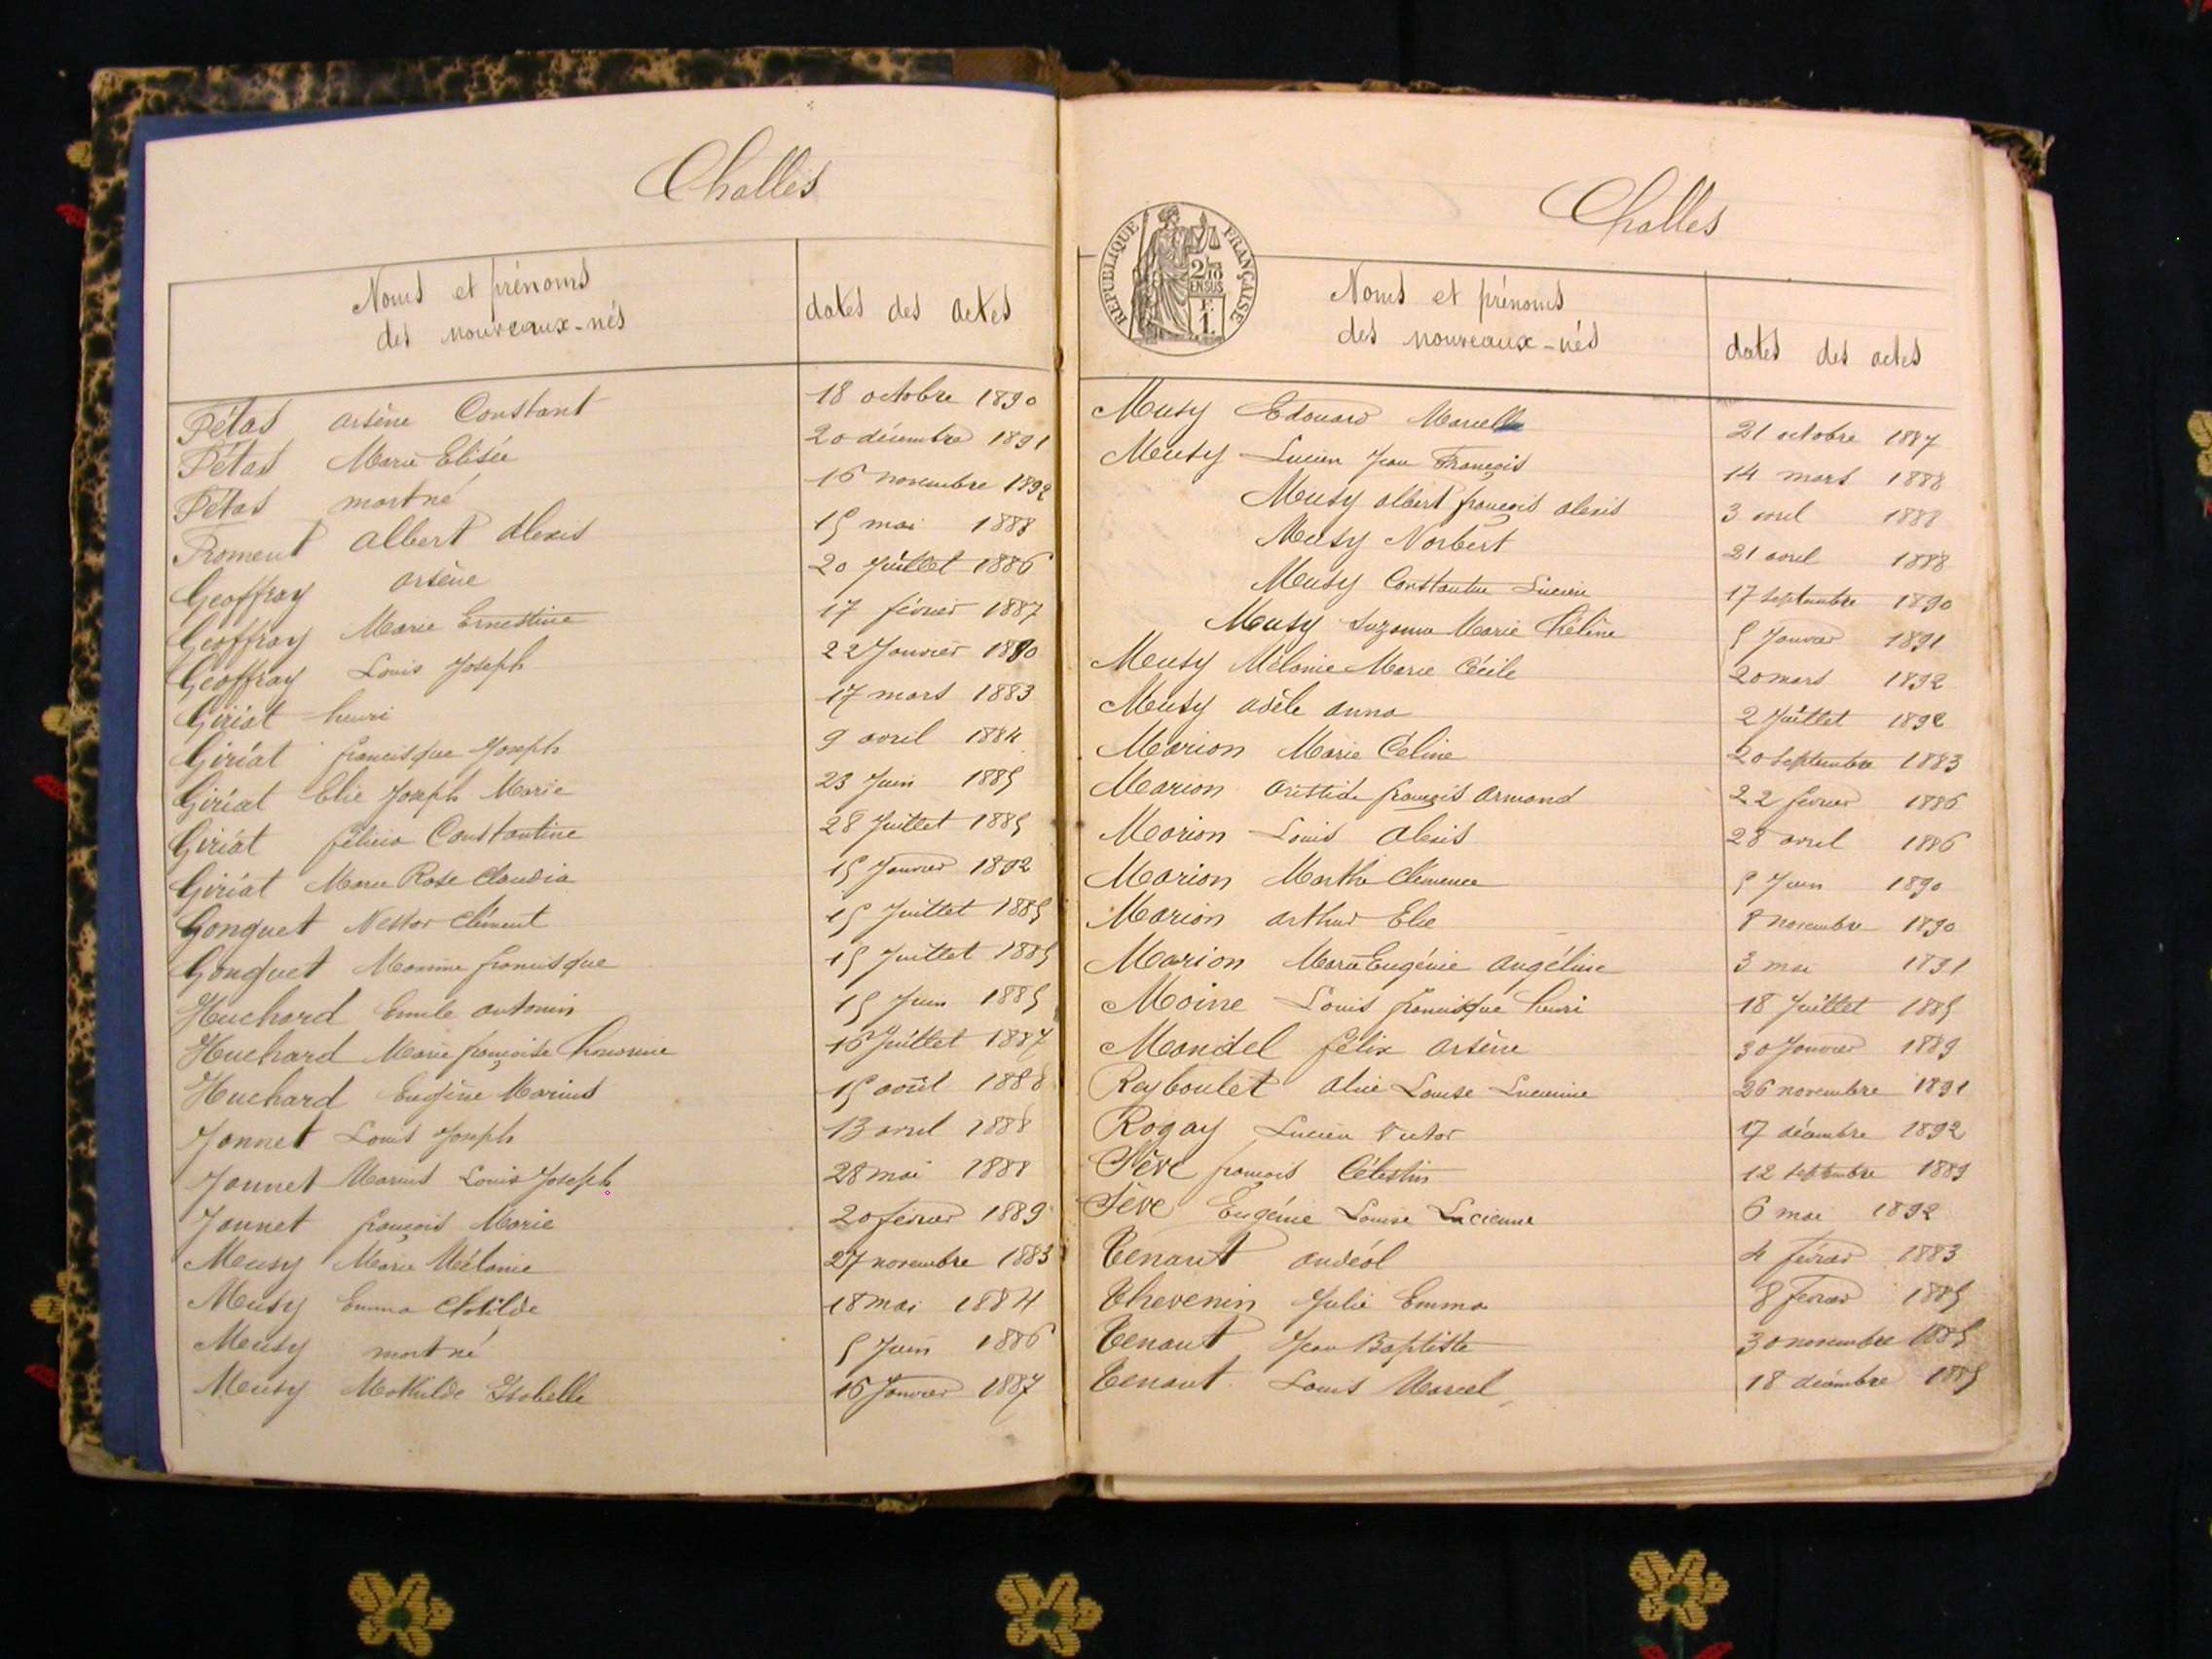 Challes
Noms et prénoms
des nouveaux-nés
dates des actes
Fétas arsène Constant 18 octobre 1890
Fétas Marie Elisée 20 décembre 1891
Fétas mort né 16 novembre 1892
Froment albert alexis 15 mai 1888
Geoffray arsène 20 Juillet 1886
Geoffray Marie Ernestine 17 février 1887
Geoffray Louis Joseph 22 Janvier 1890
Giriat henri 17 mars 1883
Giriat francisque Joseph 9 avril 1884
Giriat Elie Joseph Marie 23 Juin 1885
Giriat félicia Constantine 28 Juillet 1885
Giriat Marie Rose Claudia 15 Janvier 1892
Gonguet Nestor Clément 15 Juillet 1885
Gonguet Maxime francisque 15 Juillet 1885
Huchard Emile antonin 15 Juin 1885
Huchard Marie françoise honorine 16 Juillet 1887
Huchard Eugène Marius 15 août 1888
Jannet Louis Joseph 13 avril 1888
Jannet Marius Louis Joseph 28 mai 1888
Jannet françois Marie 20 février 1889
Meusy Marie Mélanie 27 novembre 1883
Meusy Emma Clotilde 18 mai 1884
Meusy mort né 5 Juin 1886
Meusy Mathilde Isabelle 16 Janvier 1887
Challes
REPUBLIQUE FRANÇAISE
2/10
EN SUS
F.
1.
Noms et prénoms
des nouveaux-nés
dates des actes
Meusy Edouard Marcel 21 octobre 1887
Meusy Lucien Jean François 14 mars 1888
Meusy albert françois alexis 3 avril 1888
Meusy Norbert 21 avril 1888
Meusy Constantin Lucien 17 septembre 1890
Meusy Suzanne Marie hélène 5 Janvier 1891
Meusy Mélanie Marie Cécile 20 mars 1892
Meusy adèle anna 2 Juillet 1892
Marion Marie Céline 20 septembre 1883
Marion aristide françois armand 22 février 1886
Marion Louis alexis 28 avril 1886
Marion Marthe Clémence 5 Juin 1890
Marion arthur Elie 8 novembre 1890
Marion Marie Eugénie angéline 3 mai 1891
Moine Louis francisque henri 18 Juillet 1885
Mandel félix arsène 30 Janvier 1889
Rayboulet aline Louise Lucienne 26 novembre 1891
Rogay Lucien Victor 17 décembre 1892
Sève françois Célestin 12 septembre 1889
Sève Eugénie Louise Lucienne 6 mai 1892
Tenant andéol 4 février 1883
Thevenin Julie Emma 8 février 1885
Tenant Jean Baptiste 30 novembre 1885
Tenant Louis Marcel 18 décembre 1885